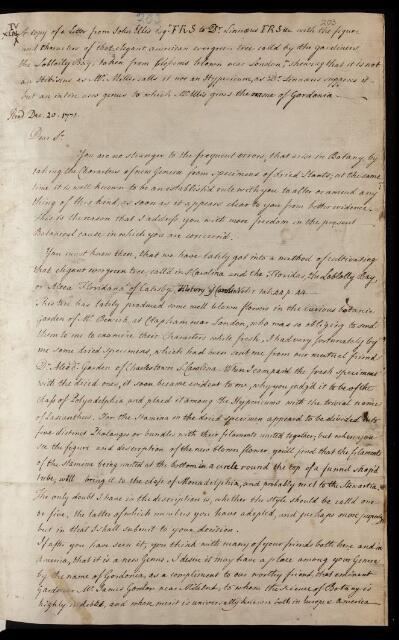 IV
203
A copy of a Letter from John Ellis Esqr. F.R.S to Dr. Linnæus F.R.S &c with the figure
and characters of that elegant american evergreen tree called by the gardiners
the Loblolly Bay, taken from blossoms blown near London, shewing that it is not
an Hibiscus as Mr. Miller calls it nor an Hypericum, as Dr. Linnæus supposes it
but an intire new genus to which Mr. Ellis gives the name of Gordonia.
Read Dec. 20. 1771.
Dear Sr.
You are no stranger to the frequent errors, that arise in Botany by
taking the Characters of new Genera from specimens of dried Plants; at the same
time it is well known to be an established rule with you to alter or amend any
thing of this kind, as soon as it appears clear to you from better evidence.
this is the reason that I address you with more freedom in the present
Botanical cause, in which you are concerned.
You must know then, that we have lately got into a method of cultivating
that elegant evergreen tree, call'd in So. Carolina and the Floridas, the Loblolly Bay,
or Alcea Floridana of Catesby, History of Carolina Vol. 1. tab. 44. p. 44
This tree has lately produced some well blown flowers in the curious botanic
Garden of Mr. Bewick, at Clapham near London, who was so obliging to send
them to me to examine their Characters while fresh, I had very fortunately by
me some dried specimens, which had been sent me from our mutual friend
Dr. Alexr. Garden of Charlestown So. Carolina. When I compared the fresh specimens
with the dried ones, it soon became evident to me, why you judg'd it to be of the
class of Polyadelphia and placed it among the Hypericums with the trivial name
of Lasianthus. For the Stamina in the dried specimen appeared to be divided into
five distinct Phalanges or bundles with their filaments united together, but when you
see the figure and description of the new blown flower, you'll find that the filaments
of the stamina being united at the bottom in a circle round the top of a funnel shap'd
tube, will bring it to the class of Monadelphia, and probably next to the Stewartia.
The only doubt I have in the description is, whether the style should be called one
or five, the latter of which numbers you have adopted, and perhaps more properly
but in that I shall submit to your decision.
If after you have seen it, you think with many of your friends both here and in
America, that it is a new Genus, I desire it may have a place among your Genera
by the name of Gordonia, as a compliment to our worthy friend, that eminent
Gardener Mr. James Gordon near Mile End, to whom the science of Botany is
highly indebted, and whose merit is universally known both in Europe & America